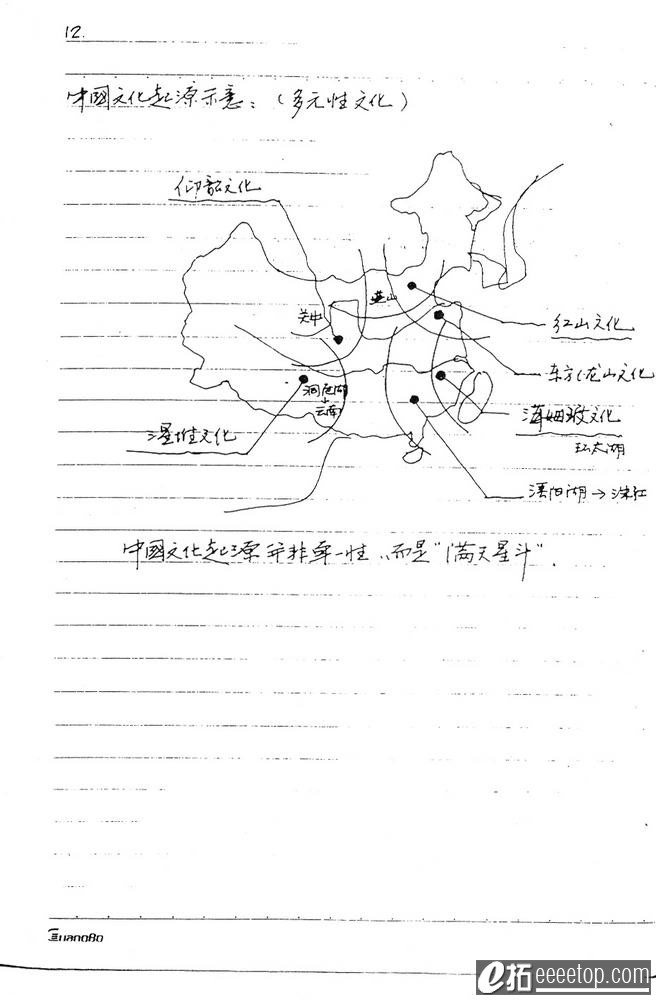 12.
中國文化起源示意：（多元性文化）
仰韶文化
燕山
关中
红山文化
东方（龙山文化
洞庭湖
↓
云南
文化
环太湖
湖→珠江
中國文化起源并非单一性，而是“满天星斗”.
GuangBo
e拓 eeeetop.com